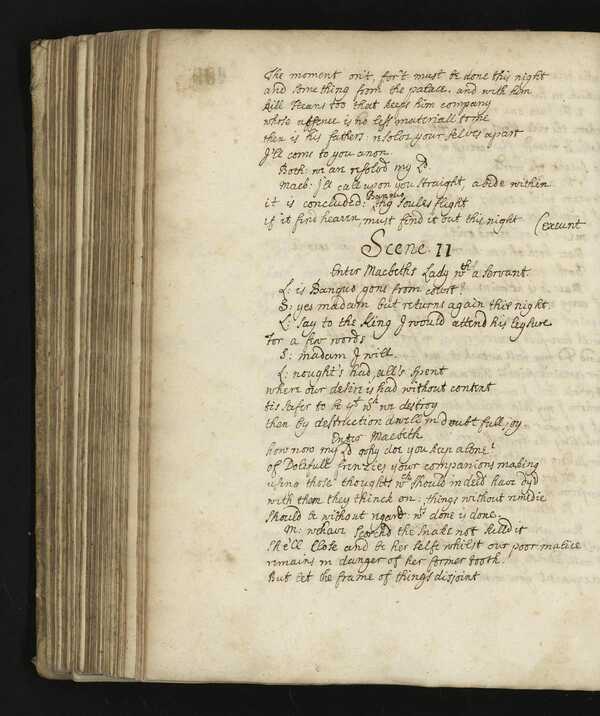 The moment on't, for't must be done this night
and something from the palace. and with him
Fleans too that keeps him company
whose absence is no less materiall to me
then is his fathers: resolve your selves apart
I'll come to you anon.
Both: we are resolvd my Ld
Macb: I'll call upon you straight, abide within
it is concluded: Banquo thy soules flight
if it find heaven, must find it out this night (exeunt
Scene. II
Enter Macbeths Lady wth a servant
L: is Banquo gone from court?
S: yes madam but returns again this night.
L: say to the King I would attend his leysure
for a few words
S: madam I will.
L: nought's had, all's spent
where our desire is had without content
tis safer to be yt wch we destroy
then by destruction dwell in doubtfull joy.
Enter Macbeth
how now my Ld why doe you keep alone?
of Dolefull frenzies your companions making
using those thoughts wch should indeed have dy'd
with them they thinck on: things without remedie
should be without regard: wts done is done.
M: we have scorchd the snake not killd it
she'll close and be her selfe whilst our poor malice
remains in danger of her former tooth.
But let the frame of things disjoint